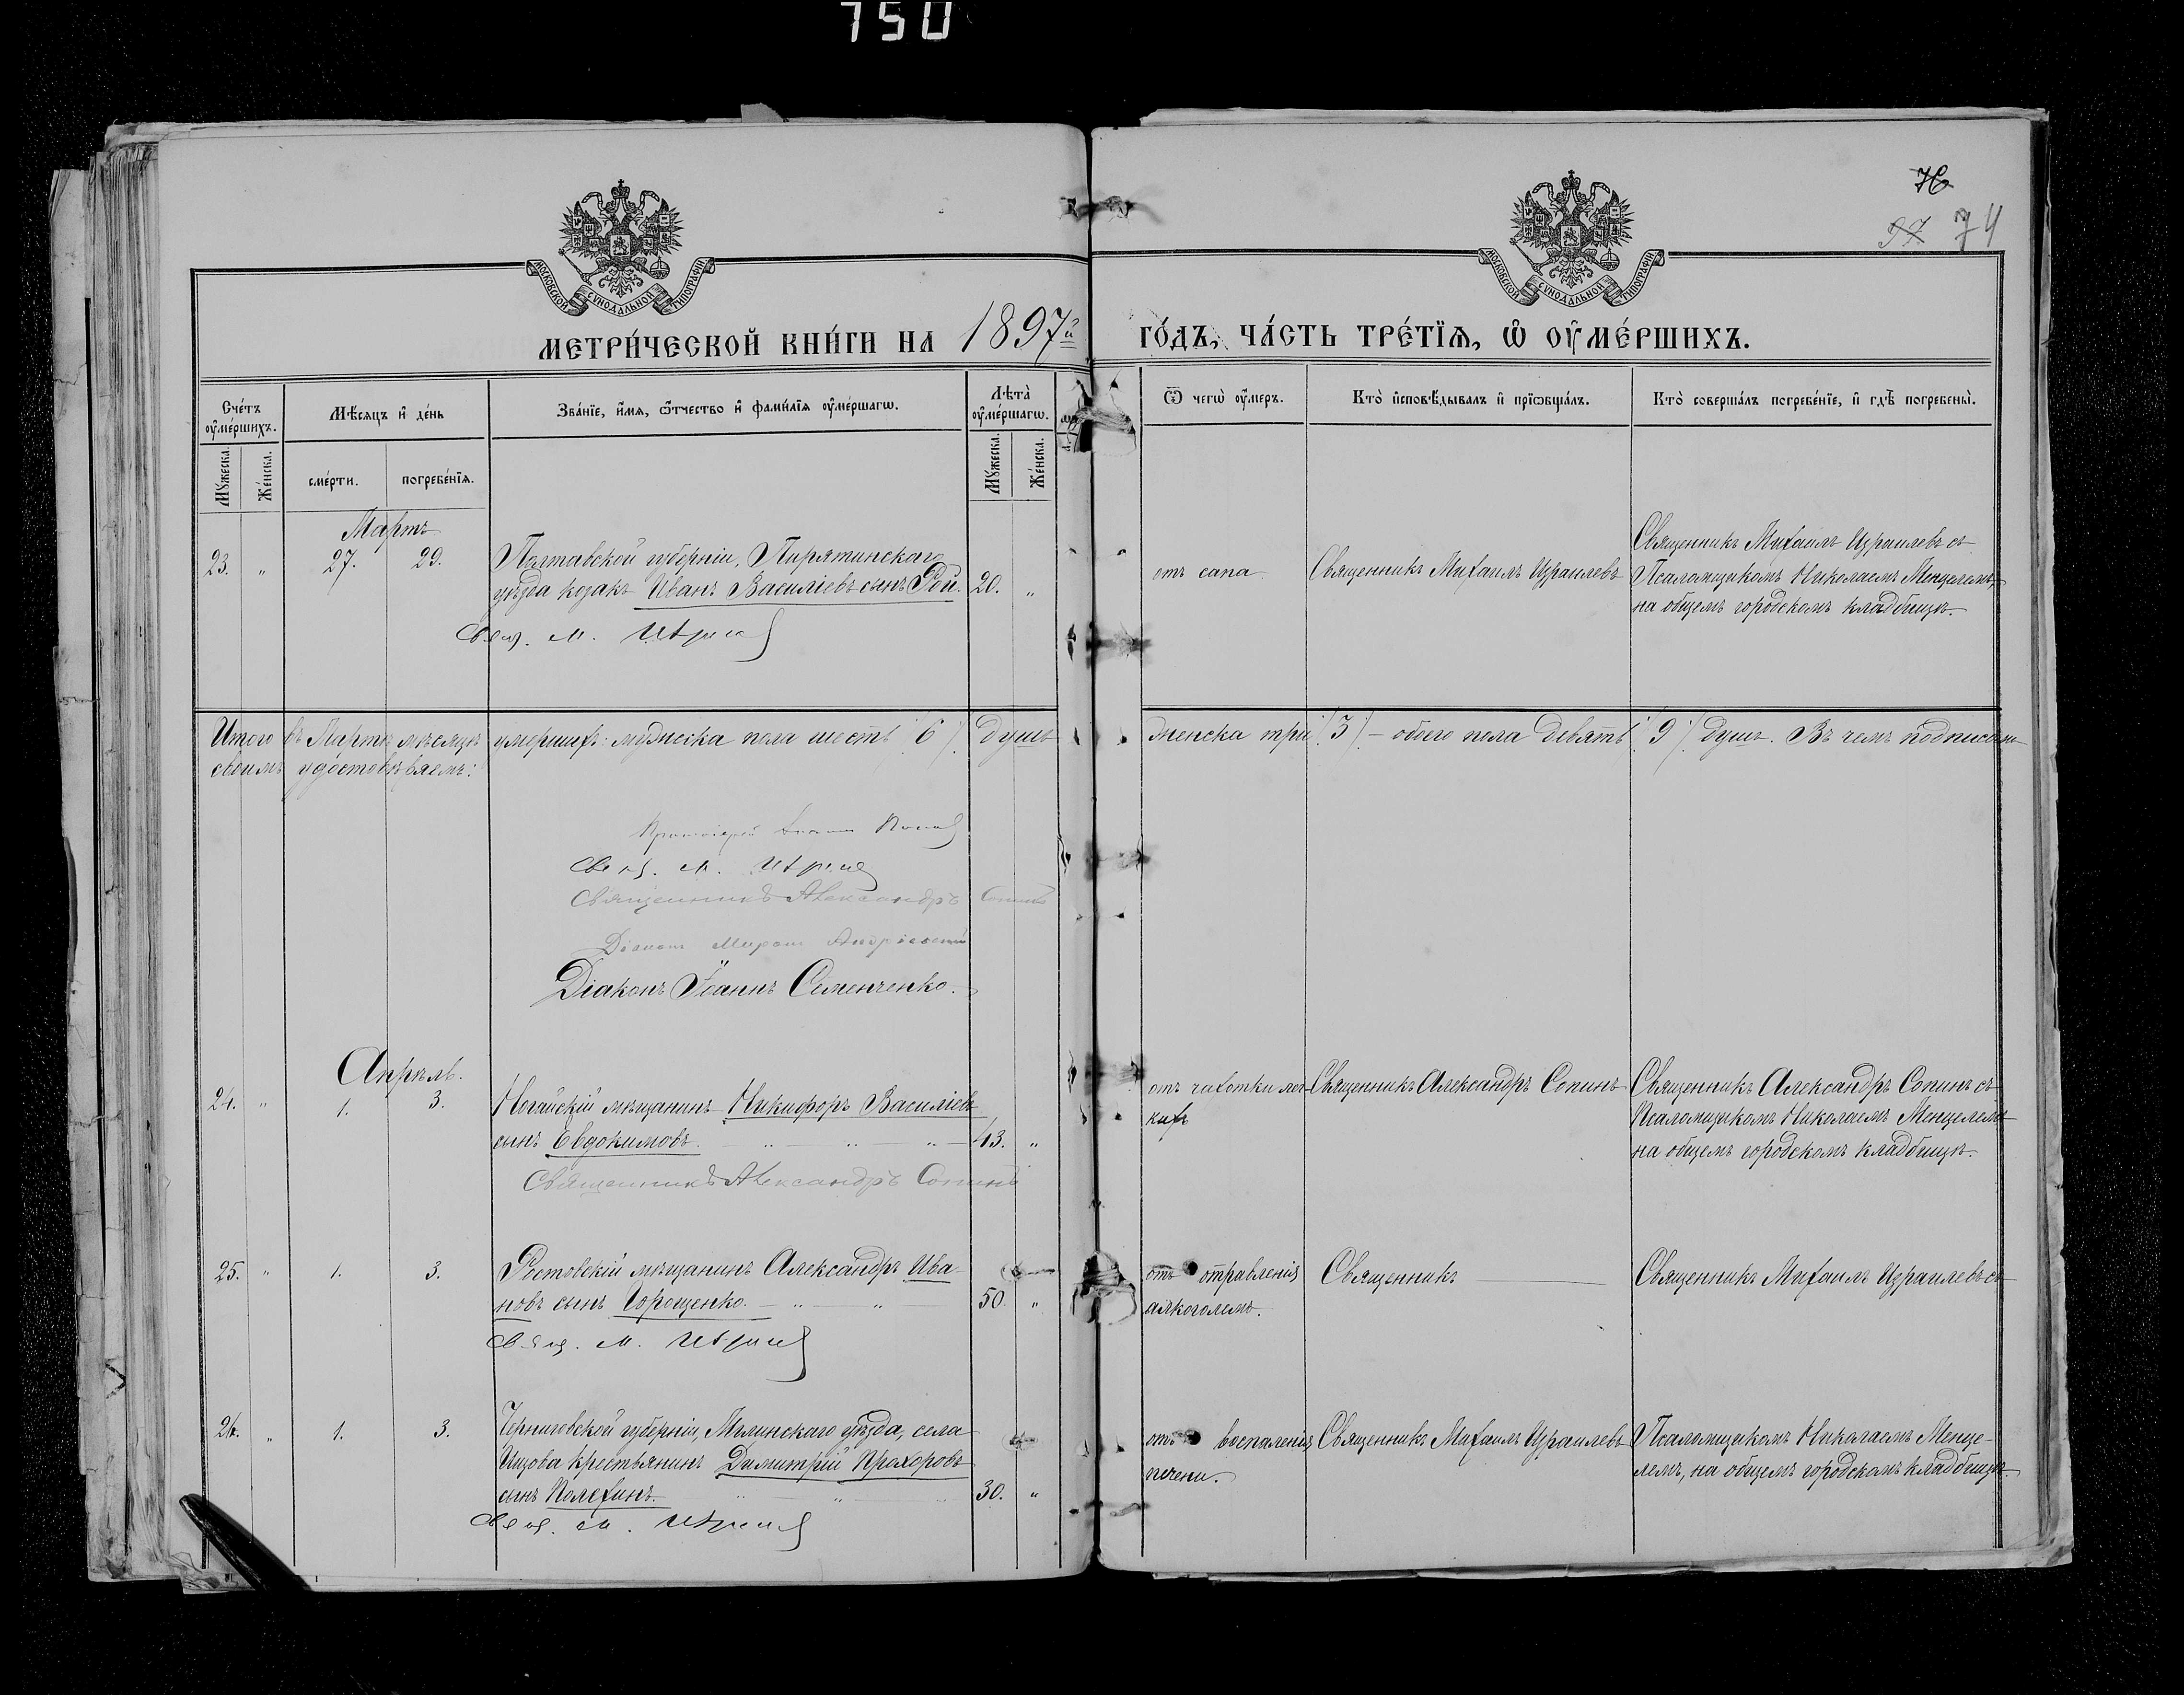 750
76
97 74
МОСКОВСКОЙ СУНОДАЛЬНОЙ ТИПОГРАФІИ
МОСКОВСКОЙ СУНОДАЛЬНОЙ ТИПОГРАФІИ
МЕТРИ́ЧЕСКОЙ КНИ́ГИ НА 1897й ГО́ДЪ, ЧА́СТЬ ТРЕ́ТЇѦ, Ѡ҆ ОУ҆МЕ́РШИХЪ.
Сче́тъ оу҆ме́ршихъ.
Мѣ́сяцъ и҆ де́нь
Зва́нїе, и҆́мя, ѻ҆́тчество и҆ фами́лїя оу҆ме́ршагѡ.
Лѣта̀ оу҆ме́ршагѡ.
Ѿ чегѡ̀ оу҆́меръ.
Кто̀ и҆сповѣ́дывалъ и҆ прїѡбща́лъ.
Кто̀ соверша́лъ погребе́нїе, и҆ гдѣ̀ погребены̀.
Мꙋ́жеска.
Же́нска.
сме́рти.
погребе́нїя.
Мꙋ́жеска.
Же́нска.
Мартъ
23. " 27. 29. Полтавской губерніи, Пирятинскаго
уѣзда козакъ Иванъ Василіевъ сынъ Рой. 20. "
Свящ. М.
отъ сапа
Священникъ Михаилъ Израилевъ
Священникъ Михаилъ Израилевъ съ
Псаломщикомъ Николаемъ Менцелемъ,
на общемъ городскомъ кладбищѣ.
Итого въ Мартѣ мѣсяцѣ умершихъ: мужеска пола шесть (6) душъ женска три (3) – обоего пола девять (9) душъ. Въ чемъ подписомъ
своимъ удостовѣряемъ:
Протоіерей
Свящ. М.
Священникъ Александръ Сопинъ
Діаконъ
Діаконъ Іоаннъ Семенченко.
Апрѣль.
24. " 1. 3. Ногайскій мѣщанинъ Никифоръ Василіевъ
сынъ Евдокимовъ. 43. "
Священникъ Александръ Сопинъ
отъ чахотки лег-
кихъ
Священникъ Александръ Сопинъ
Священникъ Александръ Сопинъ съ
Псаломщикомъ Николаемъ Менцелемъ
на общемъ городскомъ кладбищѣ.
25. " 1. 3. Ростовскій мѣщанинъ Александръ Ива-
новъ сынъ Горощенко. 50. "
Свящ. М.
отъ отравленія
алкоголемъ.
Священникъ
Священникъ Михаилъ Израилевъ съ
26. " 1. 3. Черниговской губерніи, Мглинскаго уѣзда, села
крестьянинъ Димитрій Прохоровъ
сынъ Полехинъ. 30. "
Свящ. М.
отъ воспаленія
печени.
Священникъ Михаилъ Израилевъ
Псаломщикомъ Николаемъ Менце-
лемъ, на общемъ городскомъ кладбищѣ.